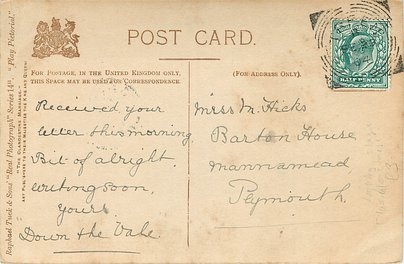 POST CARD.
FOR POSTAGE, IN THE UNITED KINGDOM ONLY,
THIS SPACE MAY BE USED FOR CORRESPONDENCE.
(FOR ADDRESS ONLY).
HALFPENNY
Raphael Tuck & Sons' "Real Photograph" Series 14 "Play Pictorial."
Received your
letter this morning
Bit of alright
writing soon,
Yours
Down the Vale
Miss M. Hicks
Barton House
Mannamead
Plymouth.